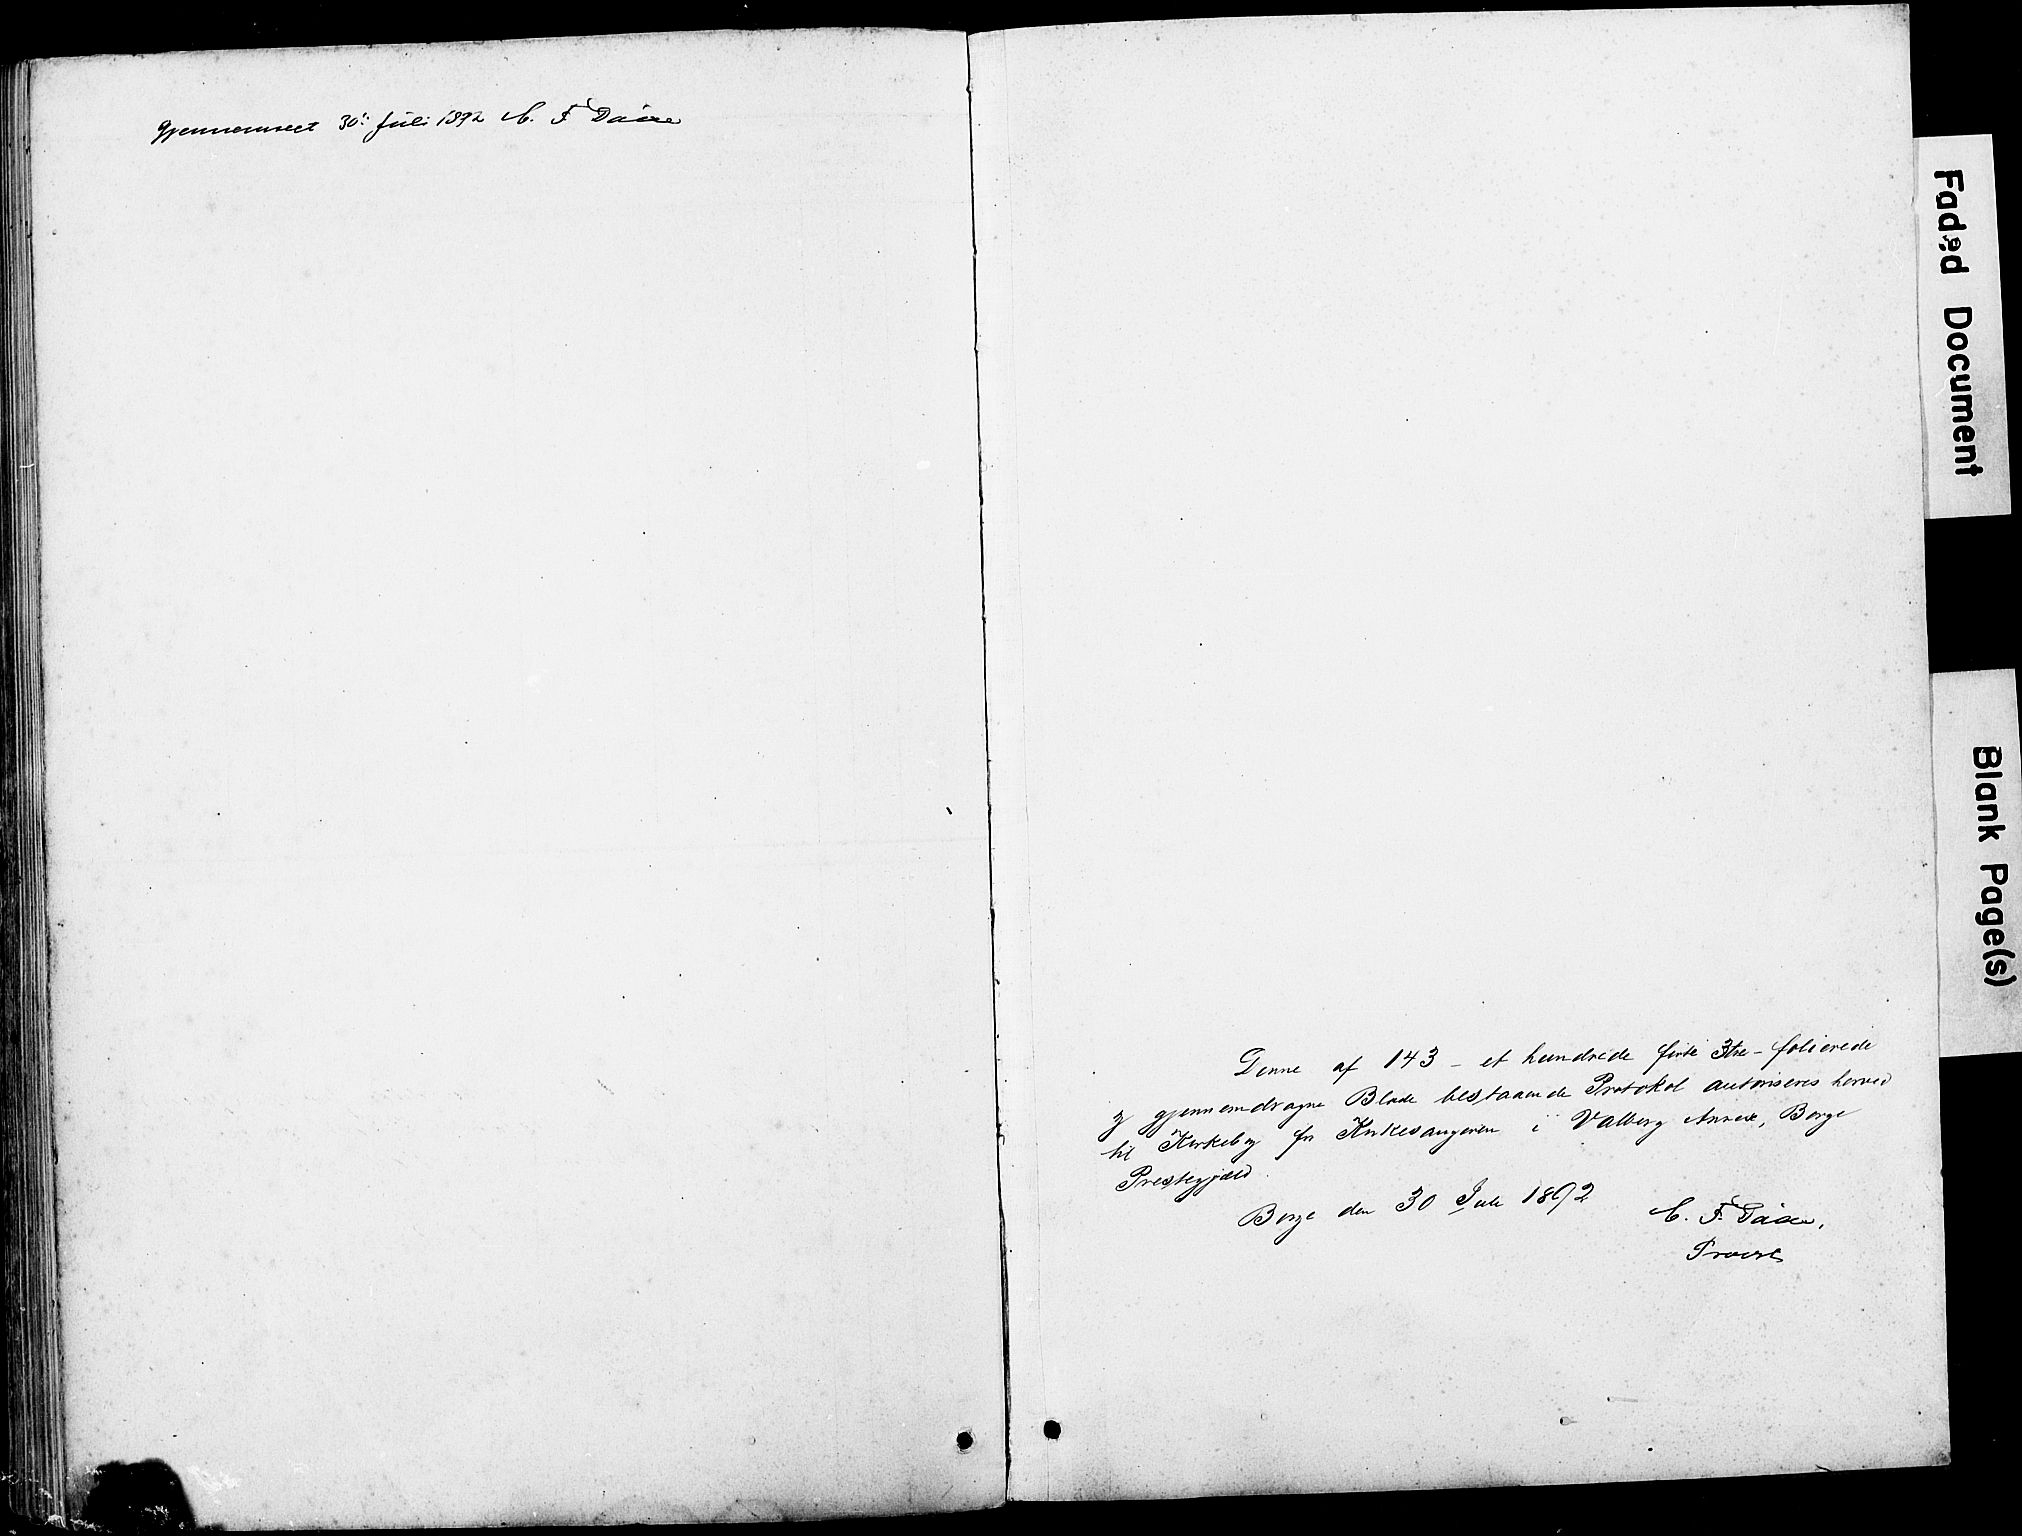 Gjennemseet 30: Juli 1892 C. F Daae
Denne af 143 - et hundrede firti 3tre - folierede
og gjennemdragne Blade bestaaende Protokol autoriseres herved
til Kirkebog for Kirkesangeren i Valberg Annex, Borge
Prestegjæld.
Borge den 30 Juli 1892
C. F. Daae,
Provst
Faded Document
Blank Page(s)